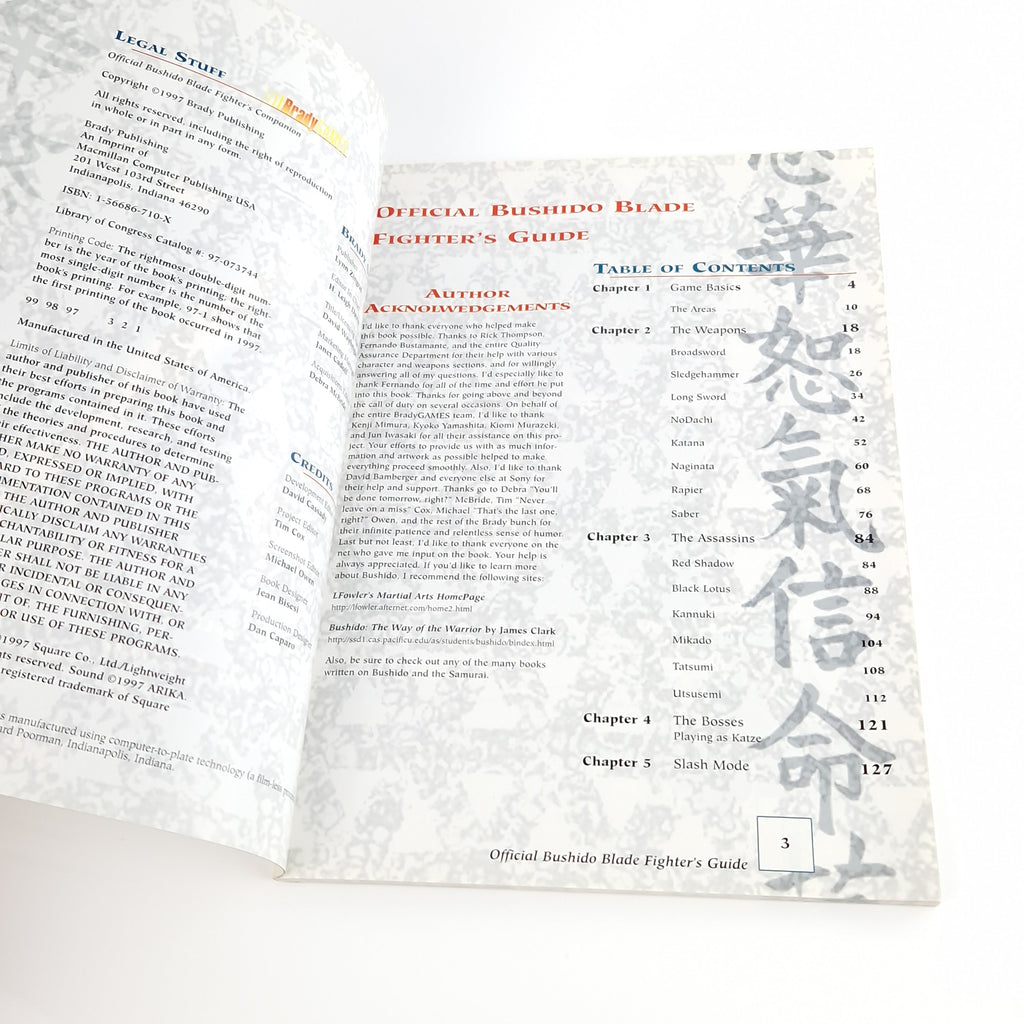 LEGAL STUFF
Official Bushido Blade Fighter's Companion
Brady
Copyright ©1997 Brady Publishing
All rights reserved, including the right of reproduction
in whole or in part in any form.
Brady Publishing
An Imprint of
Macmillan Computer Publishing USA
201 West 103rd Street
Indianapolis, Indiana 46290
ISBN: 1-56686-710-X
Library of Congress Catalog #: 97-073744
Printing Code: The rightmost double-digit num-
ber is the year of the book's printing; the right-
most single-digit number is the number of the
book's printing. For example, 97-1 shows that
the first printing of the book occurred in 1997.
99 98 97 3 2 1
Manufactured in the United States of America.
Limits of Liability and Disclaimer of Warranty: The
author and publisher of this book have used
their best efforts in preparing this book and
the programs contained in it. These efforts
include the development, research, and testing
of the theories and procedures to determine
their effectiveness. THE AUTHOR AND PUB-
MAKE NO WARRANTY OF ANY
EXPRESSED OR IMPLIED, WITH
TO THESE PROGRAMS OR THE
CONTAINED IN THIS
THE AUTHOR AND PUBLISHER
DISCLAIM ANY WARRANTIES
OR FITNESS FOR A
PURPOSE. THE AUTHOR AND
SHALL NOT BE LIABLE IN ANY
INCIDENTAL OR CONSEQUEN-
IN CONNECTION WITH, OR
OF, THE FURNISHING, PER-
OR USE OF THESE PROGRAMS.
©1997 Square Co., Ltd./Lightweight
reserved. Sound ©1997 ARIKA.
registered trademark of Square
manufactured using computer-to-plate technology (a film-less
Poorman, Indianapolis, Indiana.
CREDITS
David Cassady
Project Editor
Tim Cox
Screenshot
Michael Owen
Book Designer
Jean Bisesi
Production
Dan Caparo
OFFICIAL BUSHIDO BLADE
FIGHTER'S GUIDE
AUTHOR
ACKNOLWEDGEMENTS
I'd like to thank everyone who helped make
this book possible. Thanks to Rick Thompson,
Fernando Bustamante, and the entire Quality
Assurance Department for their help with various
character and weapons sections, and for willingly
answering all of my questions. I'd especially like to
thank Fernando for all of the time and effort he put
into this book. Thanks for going above and beyond
the call of duty on several occasions. On behalf of
the entire BradyGAMES team, I'd like to thank
Kenji Mimura, Kyoko Yamashita, Kiomi Murazeki,
and Jun Iwasaki for all their assistance on this pro-
ject. Your efforts to provide us with as much infor-
mation and artwork as possible helped to make
everything proceed smoothly. Also, I'd like to thank
David Bamberger and everyone else at Sony for
their help and support. Thanks go to Debra "You'll
be done tomorrow, right?" McBride, Tim "Never
leave on a miss" Cox, Michael "That's the last one,
right?" Owen, and the rest of the Brady bunch for
their infinite patience and relentless sense of humor.
Last but not least, I'd like to thank everyone on the
net who gave me input on the book. Your help is
always appreciated. If you'd like to learn more
about Bushido, I recommend the following sites:
LFowler's Martial Arts HomePage
http://lfowler.afternet.com/home2.html
Bushido: The Way of the Warrior by James Clark
http://ssd1.cas.pacificu.edu/as/students/bushido/bindex.html
Also, be sure to check out any of the many books
written on Bushido and the Samurai.
TABLE OF CONTENTS
Chapter 1 Game Basics 4
The Areas 10
Chapter 2 The Weapons 18
Broadsword 18
Sledgehammer 26
Long Sword 34
NoDachi 42
Katana 52
Naginata 60
Rapier 68
Saber 76
Chapter 3 The Assassins 84
Red Shadow 84
Black Lotus 88
Kannuki 94
Mikado 104
Tatsumi 108
Utsusemi 112
Chapter 4 The Bosses 121
Playing as Katze
Chapter 5 Slash Mode 127
華
恕
氣
信
命
Official Bushido Blade Fighter's Guide
3